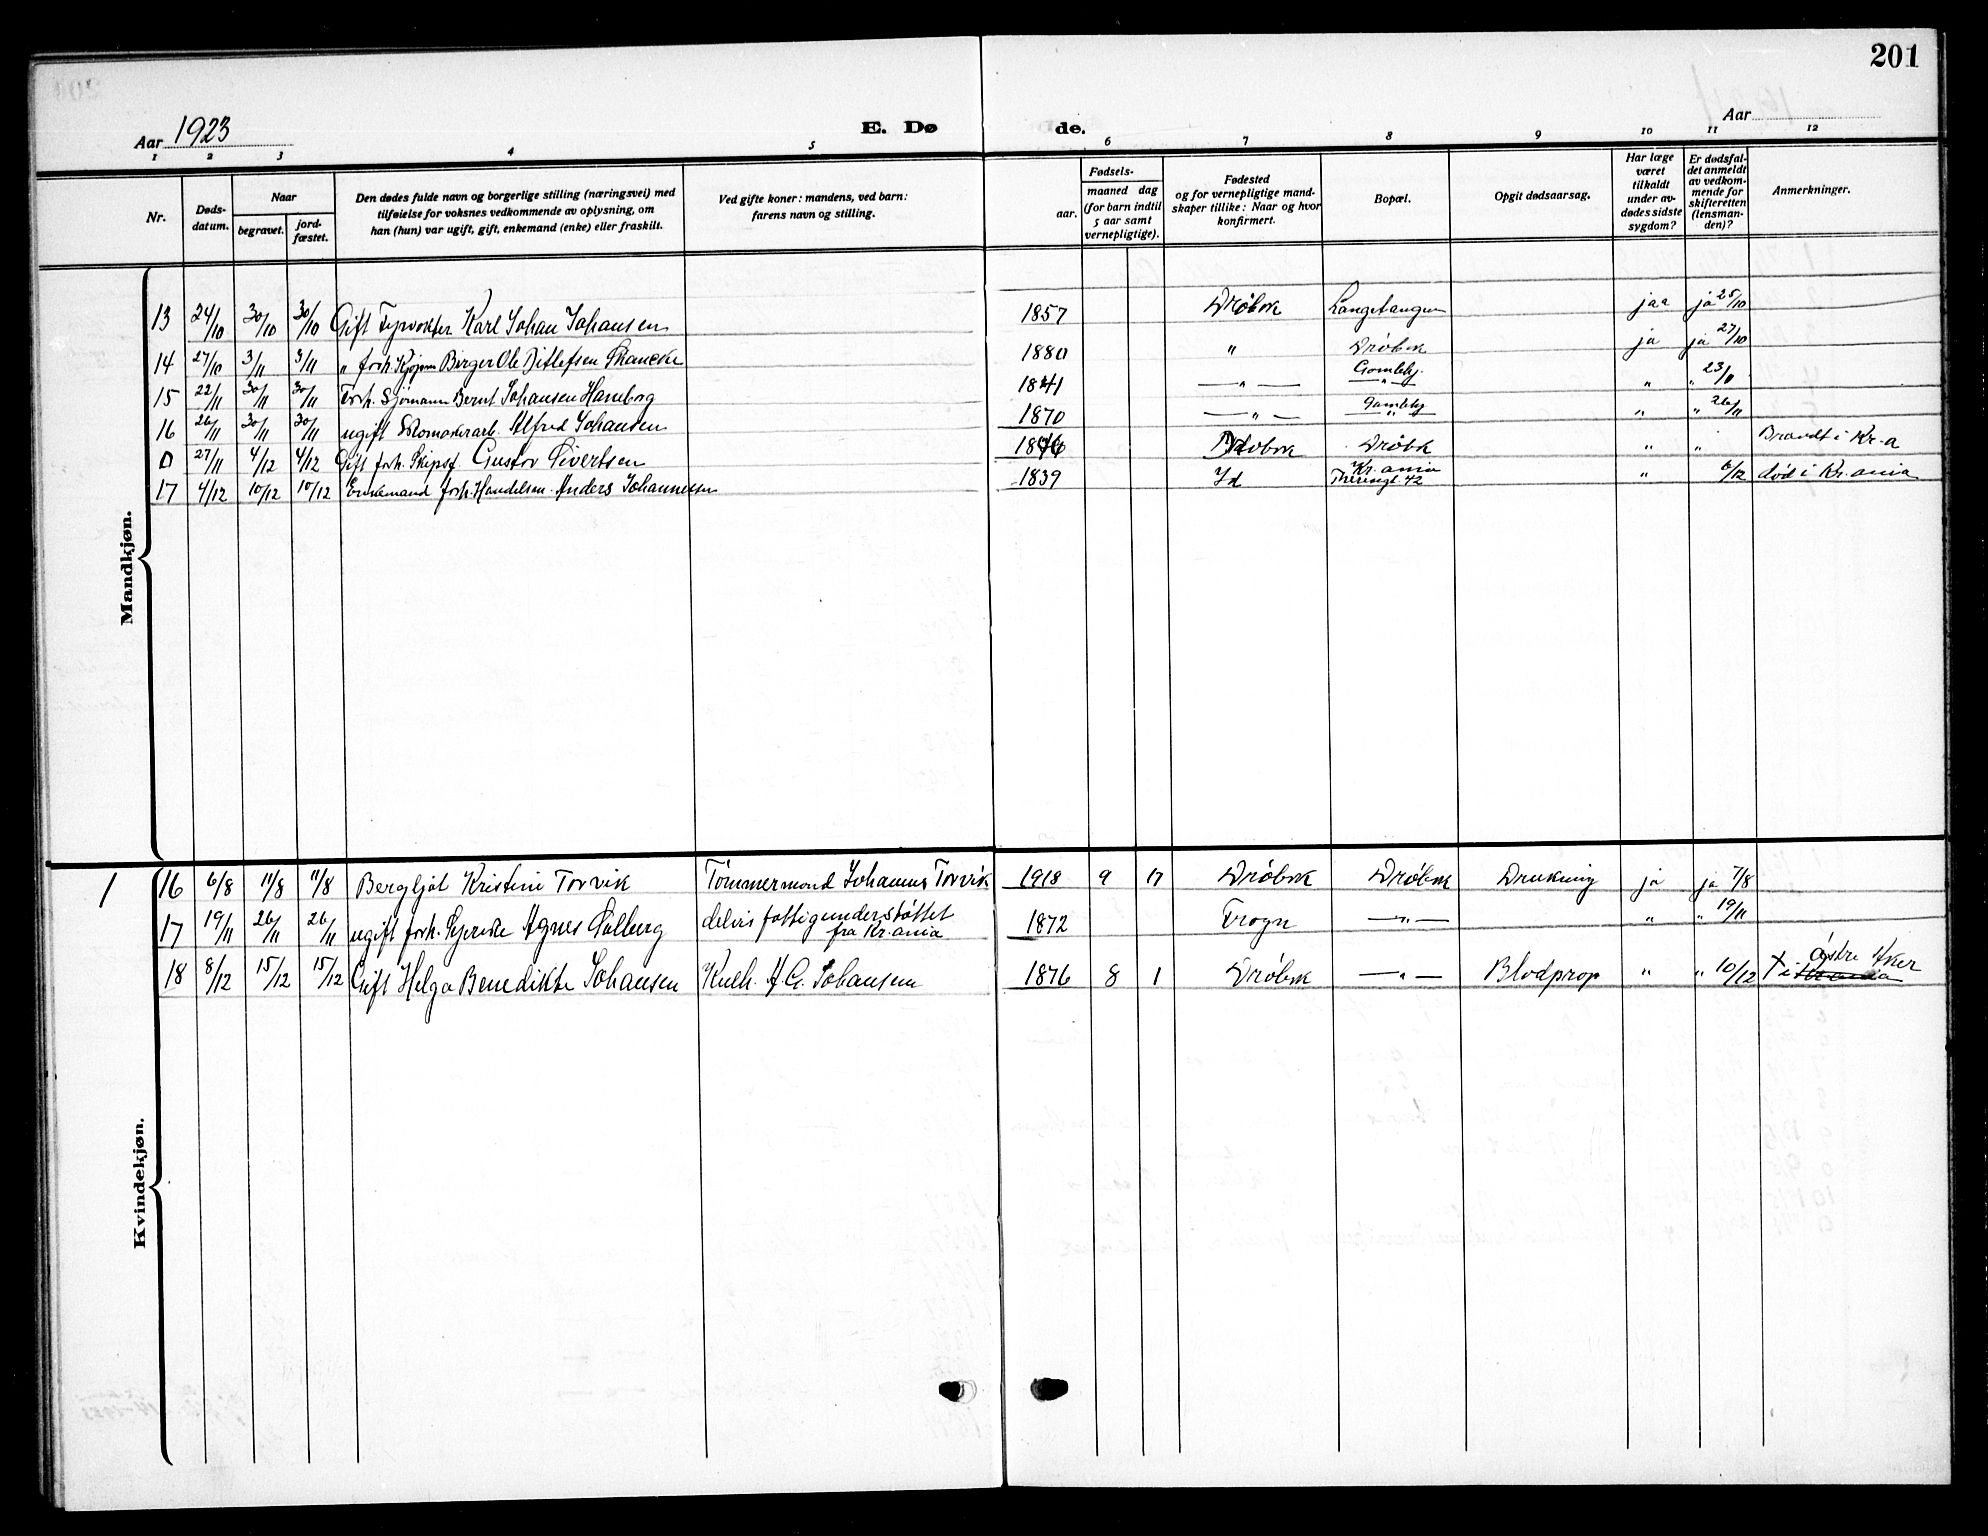 201
Aar 1923
E. Dø
de.
Aar
1 2 3 4 5 6 7 8 9 10 11 12
Nr.
Døds-
datum.
Naar
begravet.
jord-
fæstet.
Den dødes fulde navn og borgerlige stilling (næringsvei) med
tilføielse for voksnes vedkommende av oplysning, om
han (hun) var ugift, gift, enkemand (enke) eller fraskilt.
Ved gifte koner: mandens, ved barn:
farens navn og stilling.
Fødsels-
aar.
maaned dag
(for barn indtil
5 aar samt
vernepligtige).
Fødested
og for vernepligtige mand-
skaper tillike: Naar og hvor
konfirmert.
Bopæl.
Opgit dødsaarsag.
Har læge
været
tilkaldt
under av-
dødes sidste
sygdom?
Er dødsfal-
det anmeldt
av vedkom-
mende for
skifteretten
(lensman-
den)?
Anmerkninger.
Mandkjøn.
13 24/10 30/10 30/10 Gift Fyrvokter Karl Johan Johansen 1857 Drøbak Langetangen jaa ja 25/10
14 27/10 3/11 3/11 " forh. Kjøpm Birger Ole Ditlefsen Skancke 1880 " Drøbak ja ja 27/10
15 22/11 30/11 30/11 Forh. Sjømann Bernt Johansen Hamborg 1841 — " — Gamleby. — " — " "
16 26/11 30/11 30/11 ugift Skomakerarb. Alfred Johansen 1870 — " — Gamleby — " — " " 26/11
0 27/11 4/12 4/12 Gift forh. Skipsf. Gustav Sivertsen Drøbak " " Brændt i Kr.a
17 4/12 10/12 10/12 Enkemand forh. Handelsm. Anders Johannessen 1839 Id Kr.ania 42 " 6/12 død i Kr.ania
Kvindekjøn.
1 16 6/8 11/8 11/8 Bergljot Kristine Torvik Tømmermand Johannes Torvik 1918 9 17 Drøbak Drøbak Drukning ja ja 7/8
17 19/11 26/11 26/11 ugift forh. Syerske Agnes Solberg delvis fattigunderstøttet
fra Kr.ania 1872 Frogn — " — " " 19/11
18 8/12 15/12 15/12 Gift Helga Benedikte Johansen Kulh. A. G. Johansen 1876 8 1 Drøbak — " — Blodprop " " 10/12 † i Østre Aker